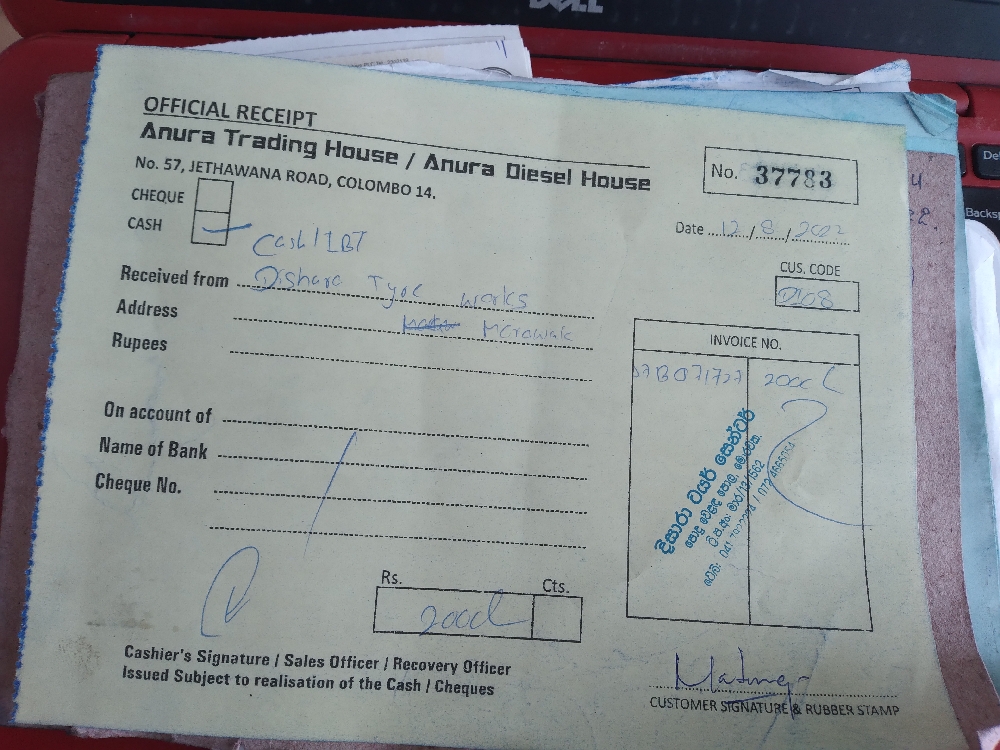 DELL
OFFICIAL RECEIPT
Anura Trading House / Anura Diesel House
No. 57, JETHAWANA ROAD, COLOMBO 14.
No. 37783
CHEQUE
CASH
Date 12/8/2022
Cash/IBT
CUS. CODE
D108
Received from Dishara Tyre works
Address Morawak
Rupees
INVOICE NO.
2000/
On account of
Name of Bank
Cheque No.
දිසාරා ටයර් සෙන්ටර්
Rs. Cts.
2000/
Cashier's Signature / Sales Officer / Recovery Officer
Issued Subject to realisation of the Cash / Cheques
CUSTOMER SIGNATURE & RUBBER STAMP
Backsp